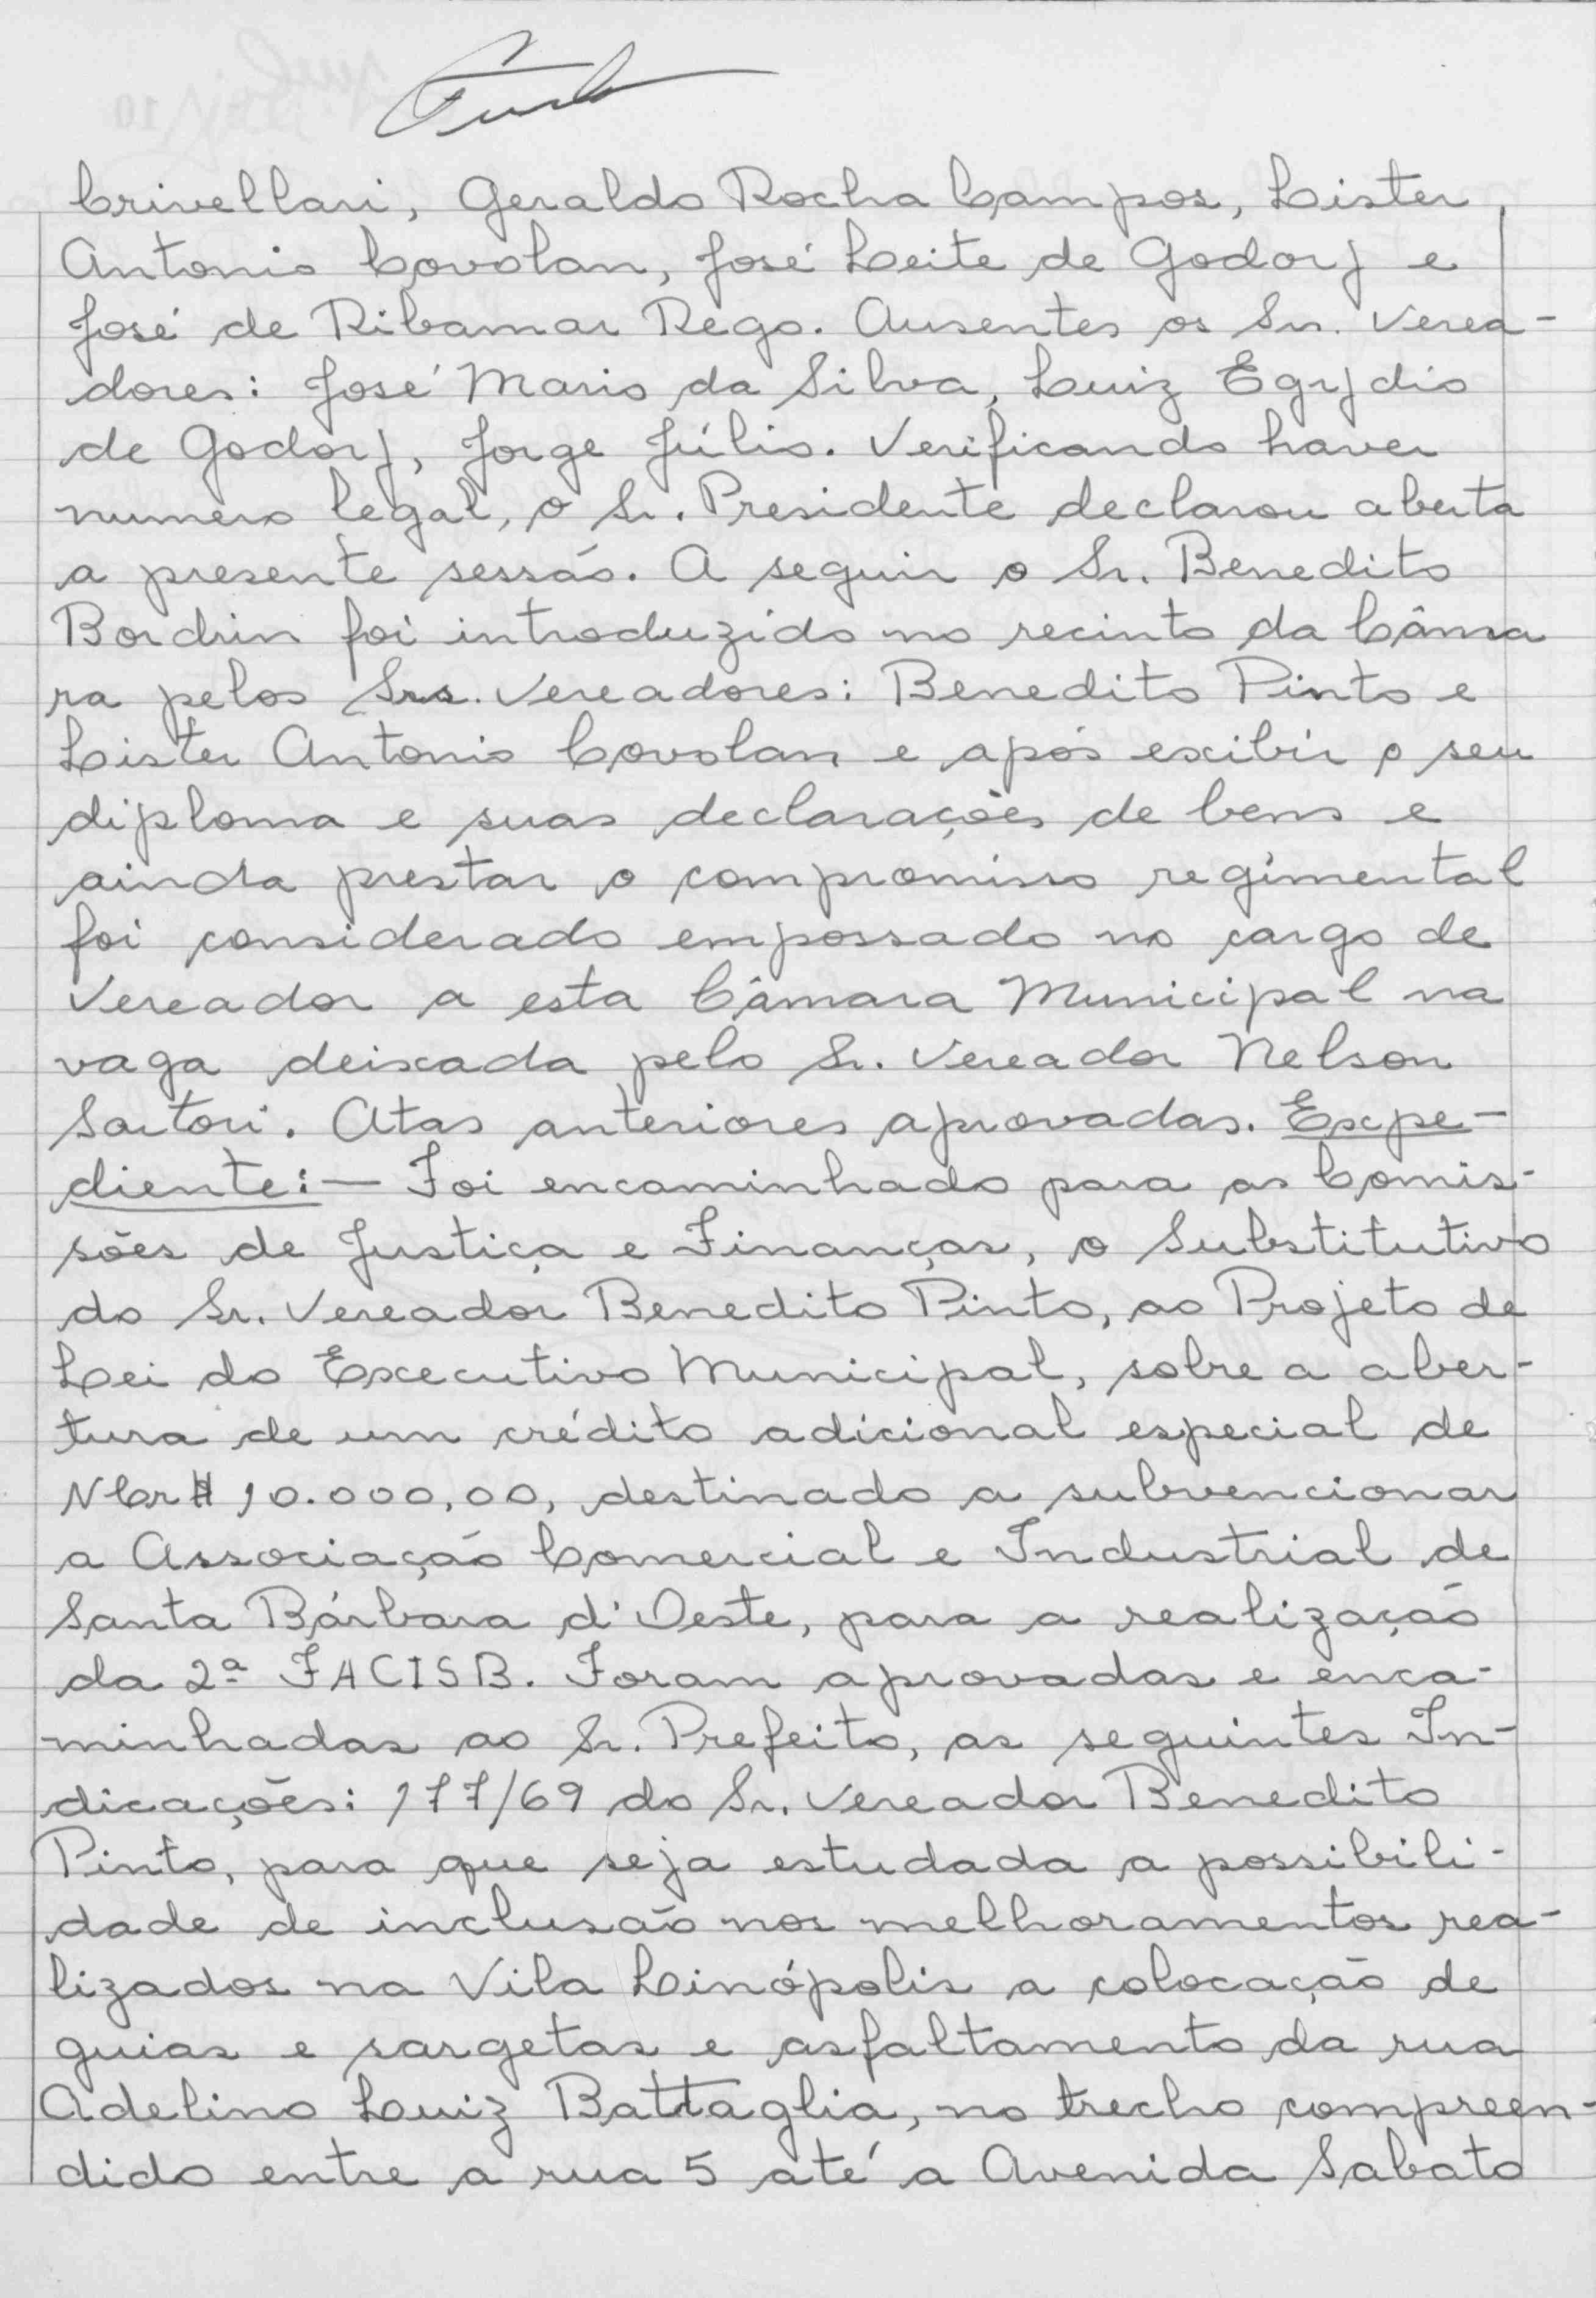 Crivellari, Geraldo Rocha Campos, Lister
Antonio Covolan, José Leite de Godoy e
José de Ribamar Rego. Ausentes os Srs. Verea-
dores: José Mario da Silva, Luiz Egydio
de Godoy, Jorge Júlio. Verificando haver
numero legal, o Sr. Presidente declarou aberta
a presente sessão. A seguir o Sr. Benedito
Bordin foi introduzido no recinto da Câma
ra pelos Srs. Vereadores: Benedito Pinto e
Lister Antonio Covolan e após exibir o seu
diploma e suas declarações de bens e
ainda prestar o compromisso regimental
foi considerado empossado no cargo de
Vereador a esta Câmara Municipal na
vaga deixada pelo Sr. Vereador Nelson
Sartori. Atas anteriores aprovadas. Expe-
diente:— Foi encaminhado para as Comis-
sões de Justiça e Finanças, o Substitutivo
do Sr. Vereador Benedito Pinto, ao Projeto de
Lei do Executivo Municipal, sobre a aber-
tura de um crédito adicional especial de
NCr$ 10.000,00, destinado a subvencionar
a Associação Comercial e Industrial de
Santa Bárbara d'Oeste, para a realização
da 2ª FACISB. Foram aprovadas e enca-
minhadas ao Sr. Prefeito, as seguintes In-
dicações: 177/69 do Sr. Vereador Benedito
Pinto, para que seja estudada a possibili-
dade de inclusão nos melhoramentos rea-
lizados na Vila Linópolis a colocação de
guias e sargetas e asfaltamento da rua
Adelino Luiz Battaglia, no trecho compreen-
dido entre a rua 5 até a Avenida Sabato